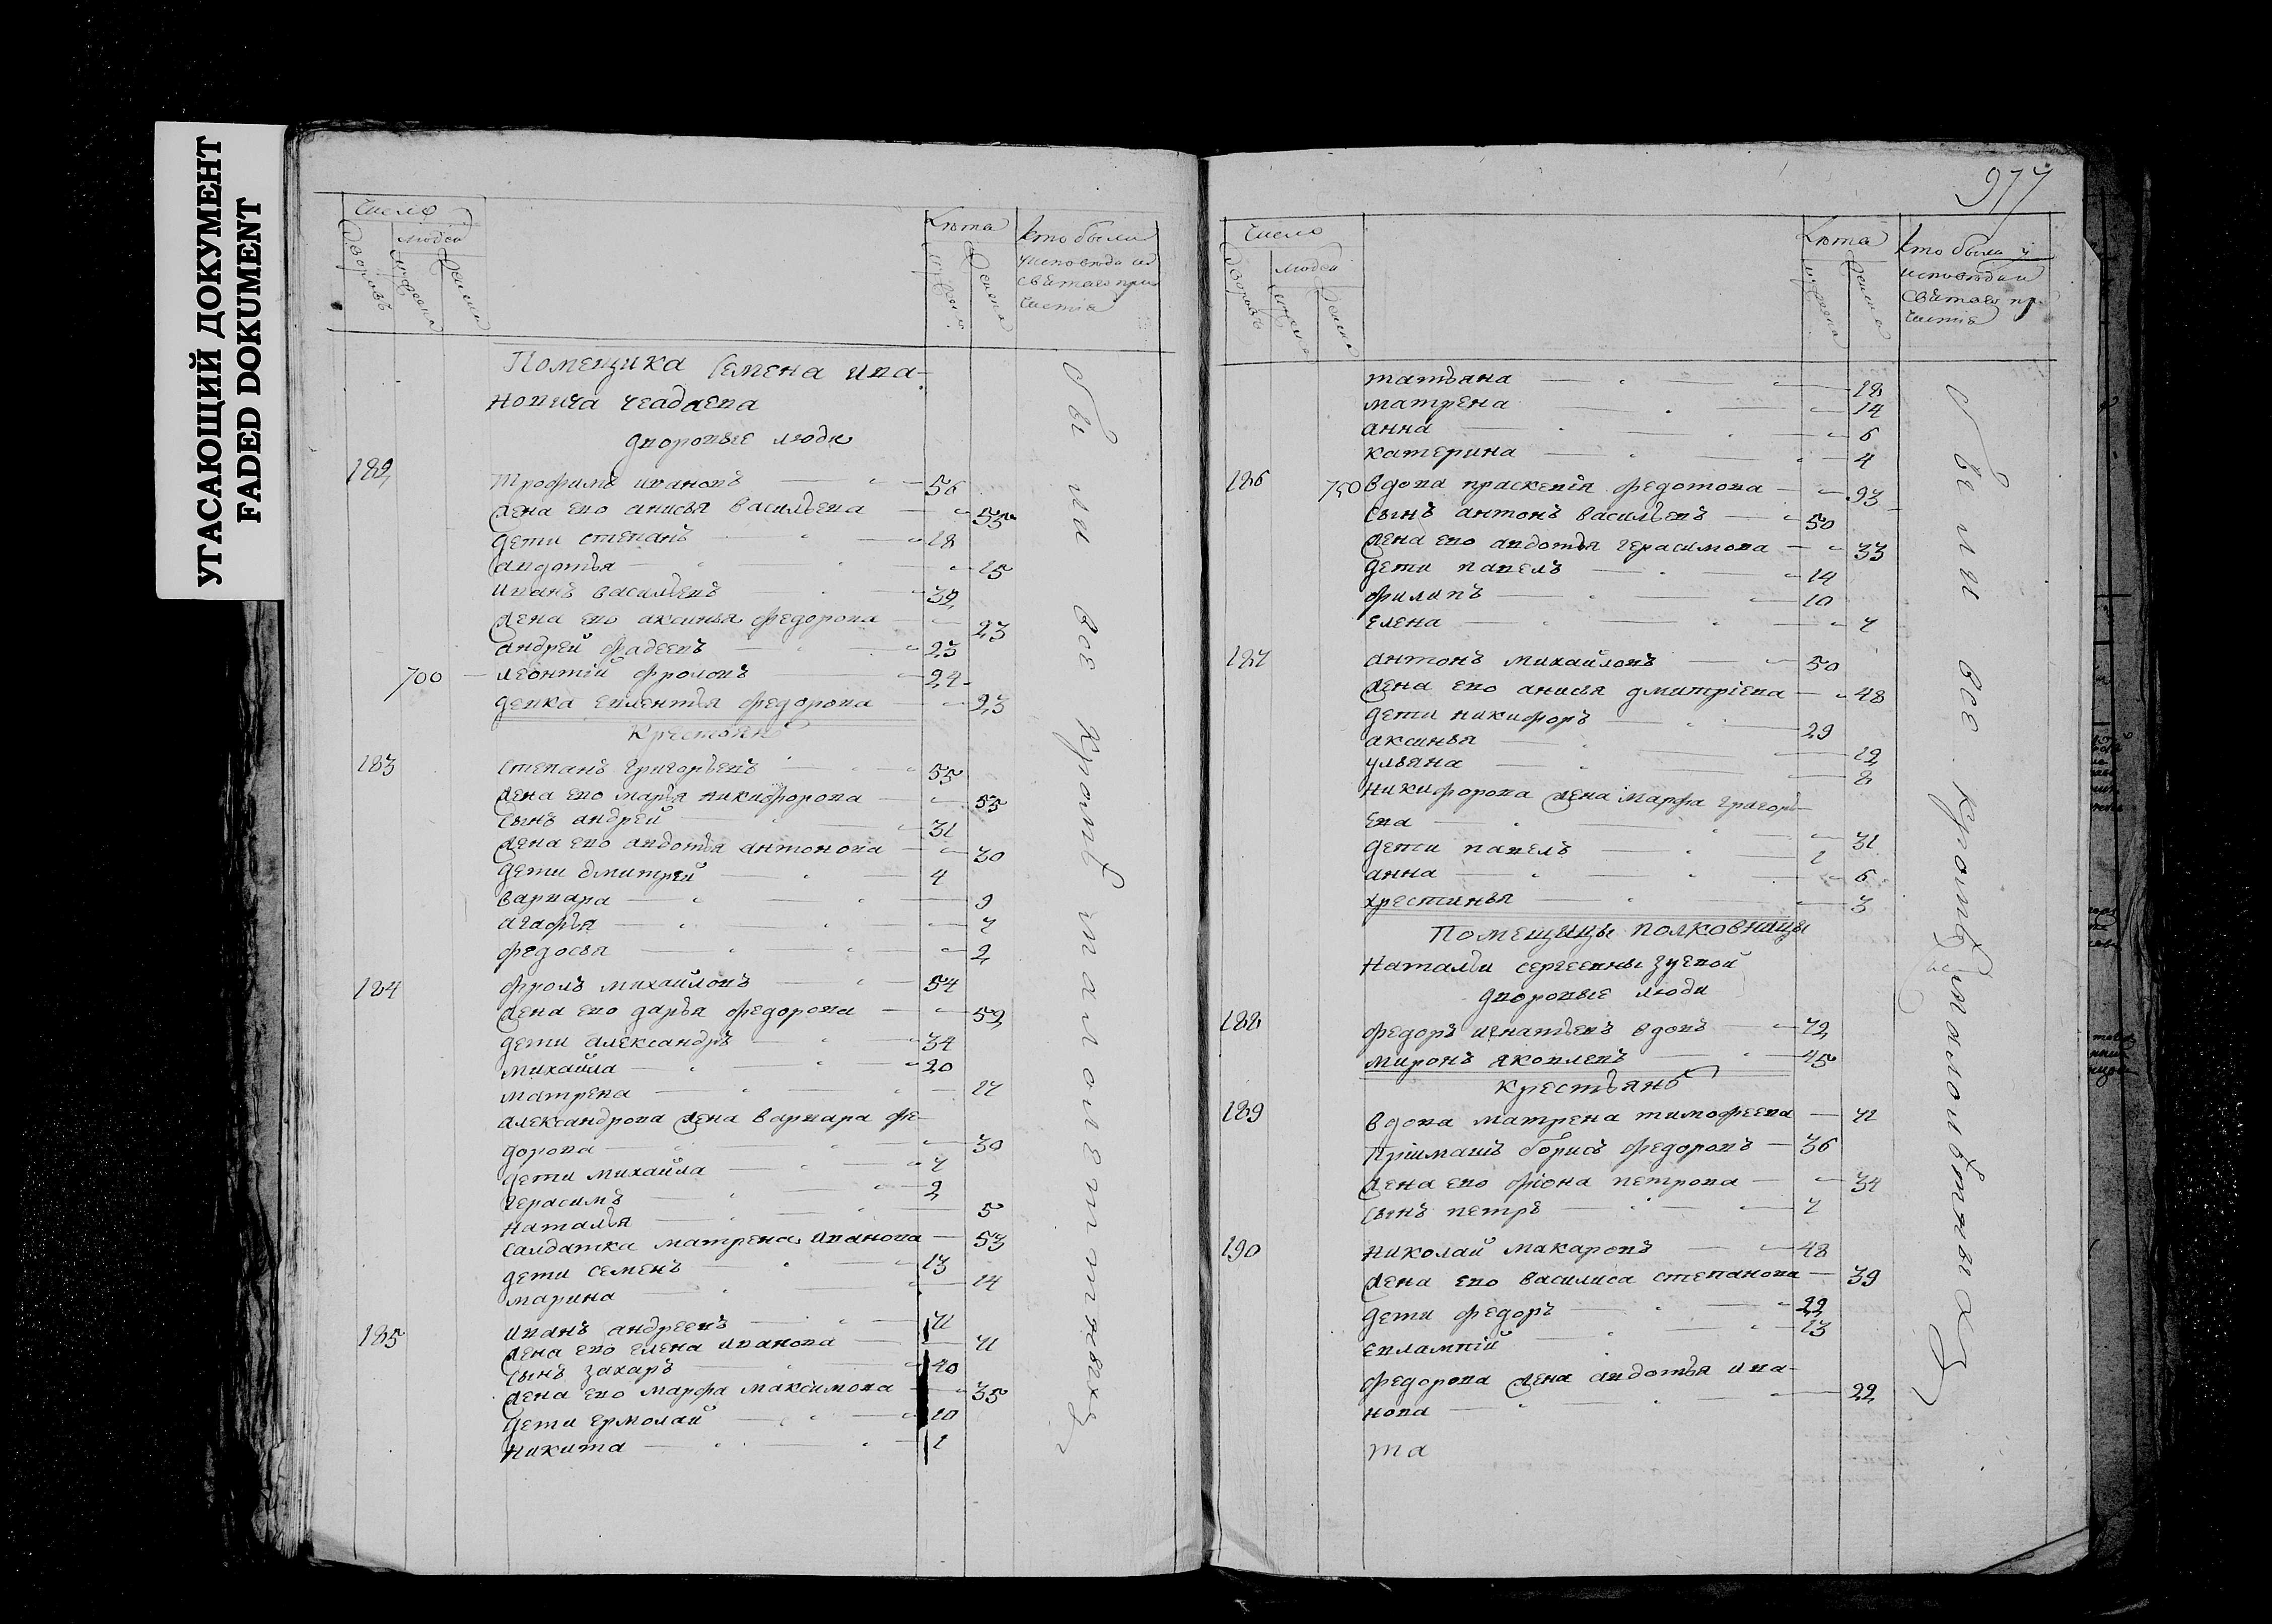 УГАСАЮЩИЙ ДОКУМЕНТ
FADED DOKUMENT
Число
Дворовъ
людей
мужеска
женска
Лѣта
мужеска
женска
кто были
у исповеди и
святаго при
частия
Помещика Семена ива-
новича чеадаева
дворовые люди
182 трофимъ ивановъ 56
жена ево анисья васильева 55
дети степанъ 18
авдотья 15
иванъ васильевъ 32
жена ево аксинья федорова 23
андрей фадеевъ 23
700 леонтій фроловъ 24
девка евлентья федорова 23
Крестьянѣ
183 степанъ григорьевъ 55
жена ево марья никифорова 55
сынъ андрей 31
жена ево авдотья антонова 30
дети дмитрей 4
варвара 9
агафья 7
федосья 2
184 фролъ михайловъ 54
жена ево дарья федорова 52
дети александръ 34
михайла 20
матрена 17
александрова жена варвара фе-
дорова 30
дети михайла 7
герасимъ 2
наталья 5
салдатка матрена иванова 53
дети семенъ 13
марина 14
185 иванъ андреевъ 71
жена ево елена иванова 71
сынъ захаръ 40
жена ево марфа максимова 35
дети ермолай 10
никита 1
Сви ии все кромѣ малолетныхъ
977
Число
Дворовъ
людей
мужеска
женска
Лѣта
мужеска
женска
кто были у
исповѣди и
святаго при
частия
татьяна 18
матрена 14
анна 6
катерина 4
186 750 вдова прасковія федотова 93
сынъ антонъ васильевъ 50
жена ево авдотья герасимова 33
дети павелъ 14
филипъ 10
елена 7
187 антонъ михайловъ 50
жена ево анисья дмитріева 48
дети никифоръ 29
аксинья 12
ульяна 8
никифорова жена марфа григорь-
ева 31
дети павелъ 1
анна 6
хрестинья 3
Помещицы полковницы
Натальи сергеевны зуевой
дворовые люди
188 федоръ игнатьевъ вдовъ 72
миронъ яковлевъ 45
Крестьянѣ
189 вдова матрена тимофеева 71
Пріимашъ борисъ федоровъ 36
жена ево фіона петрова 34
сынъ петръ 7
190 николай макаровъ 48
жена ево василиса степанова 39
дети федоръ 22
евлампій 13
федорова жена авдотья ива-
нова 22
та
Сви ии все кромѣ малолѣтныхъ